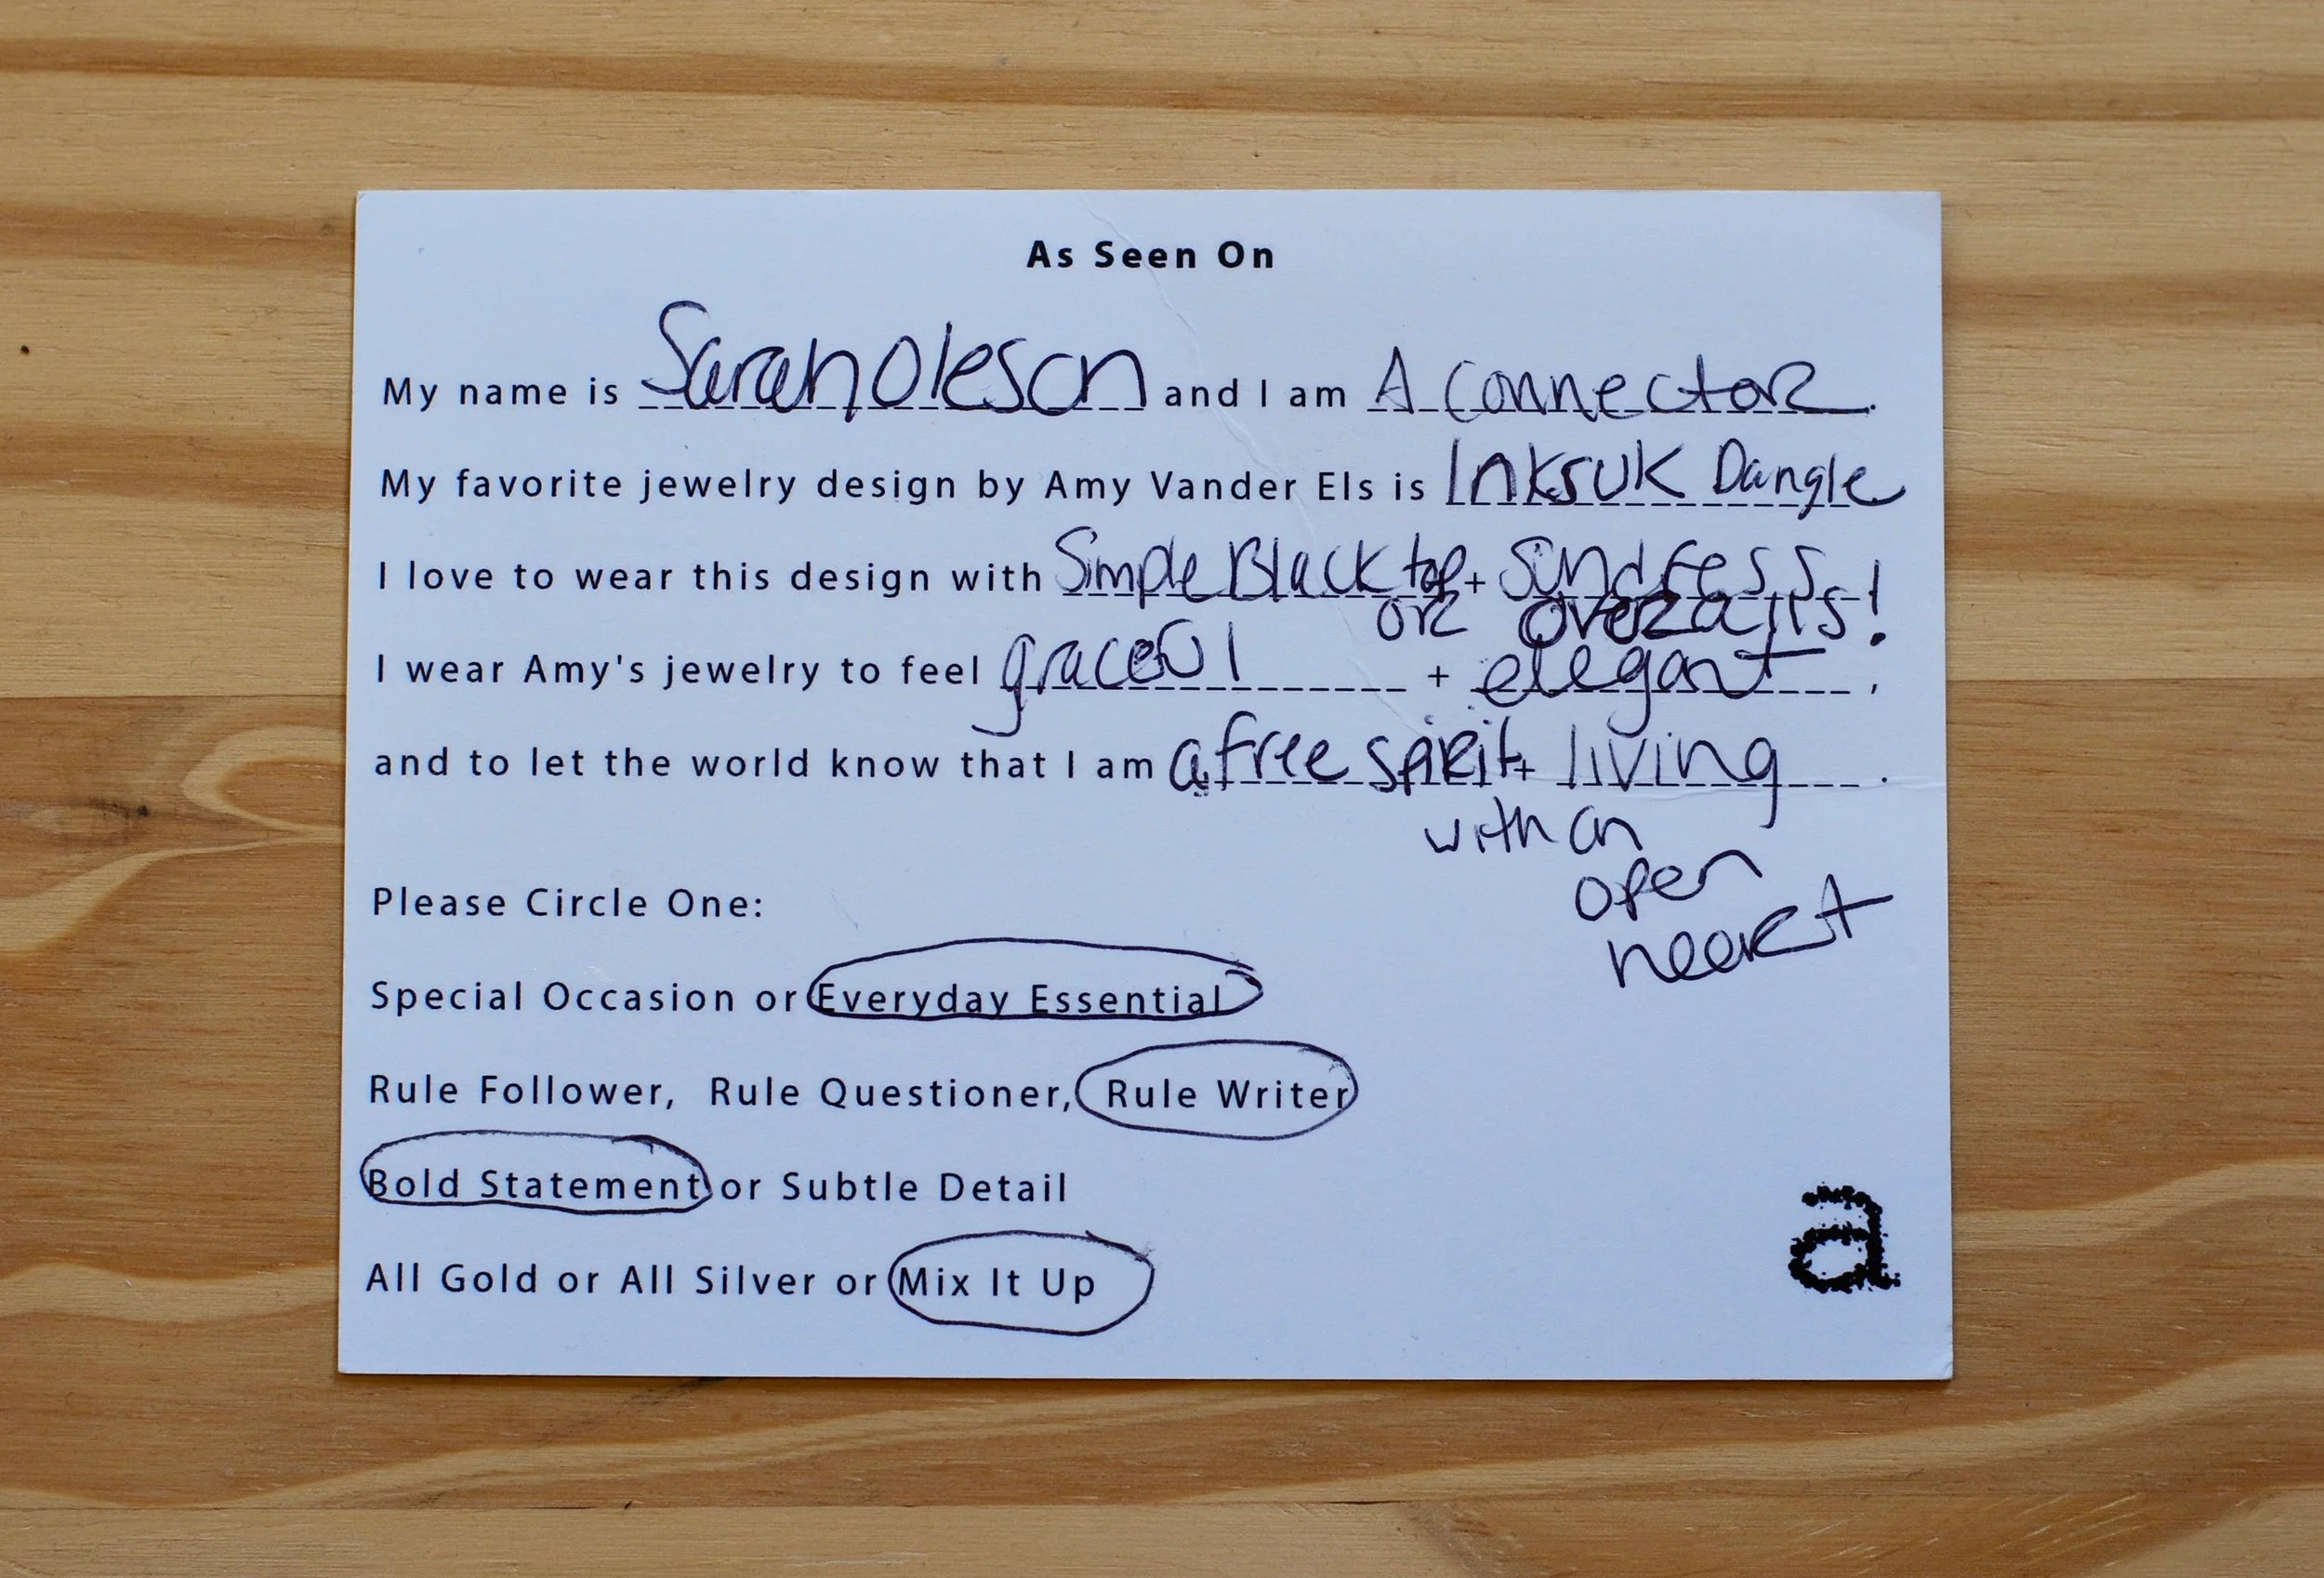 As Seen On
My name is Sarah Oleson and I am A Connector.
My favorite jewelry design by Amy Vander Els is Inksuk Dangle
I love to wear this design with Simple Black top + sundress
or overalls!
I wear Amy's jewelry to feel graceful + elegant,
and to let the world know that I am a free spirit + living.
with an
open
heart
Please Circle One:
Special Occasion or Everyday Essential
Rule Follower, Rule Questioner, Rule Writer
Bold Statement or Subtle Detail
All Gold or All Silver or Mix It Up
a